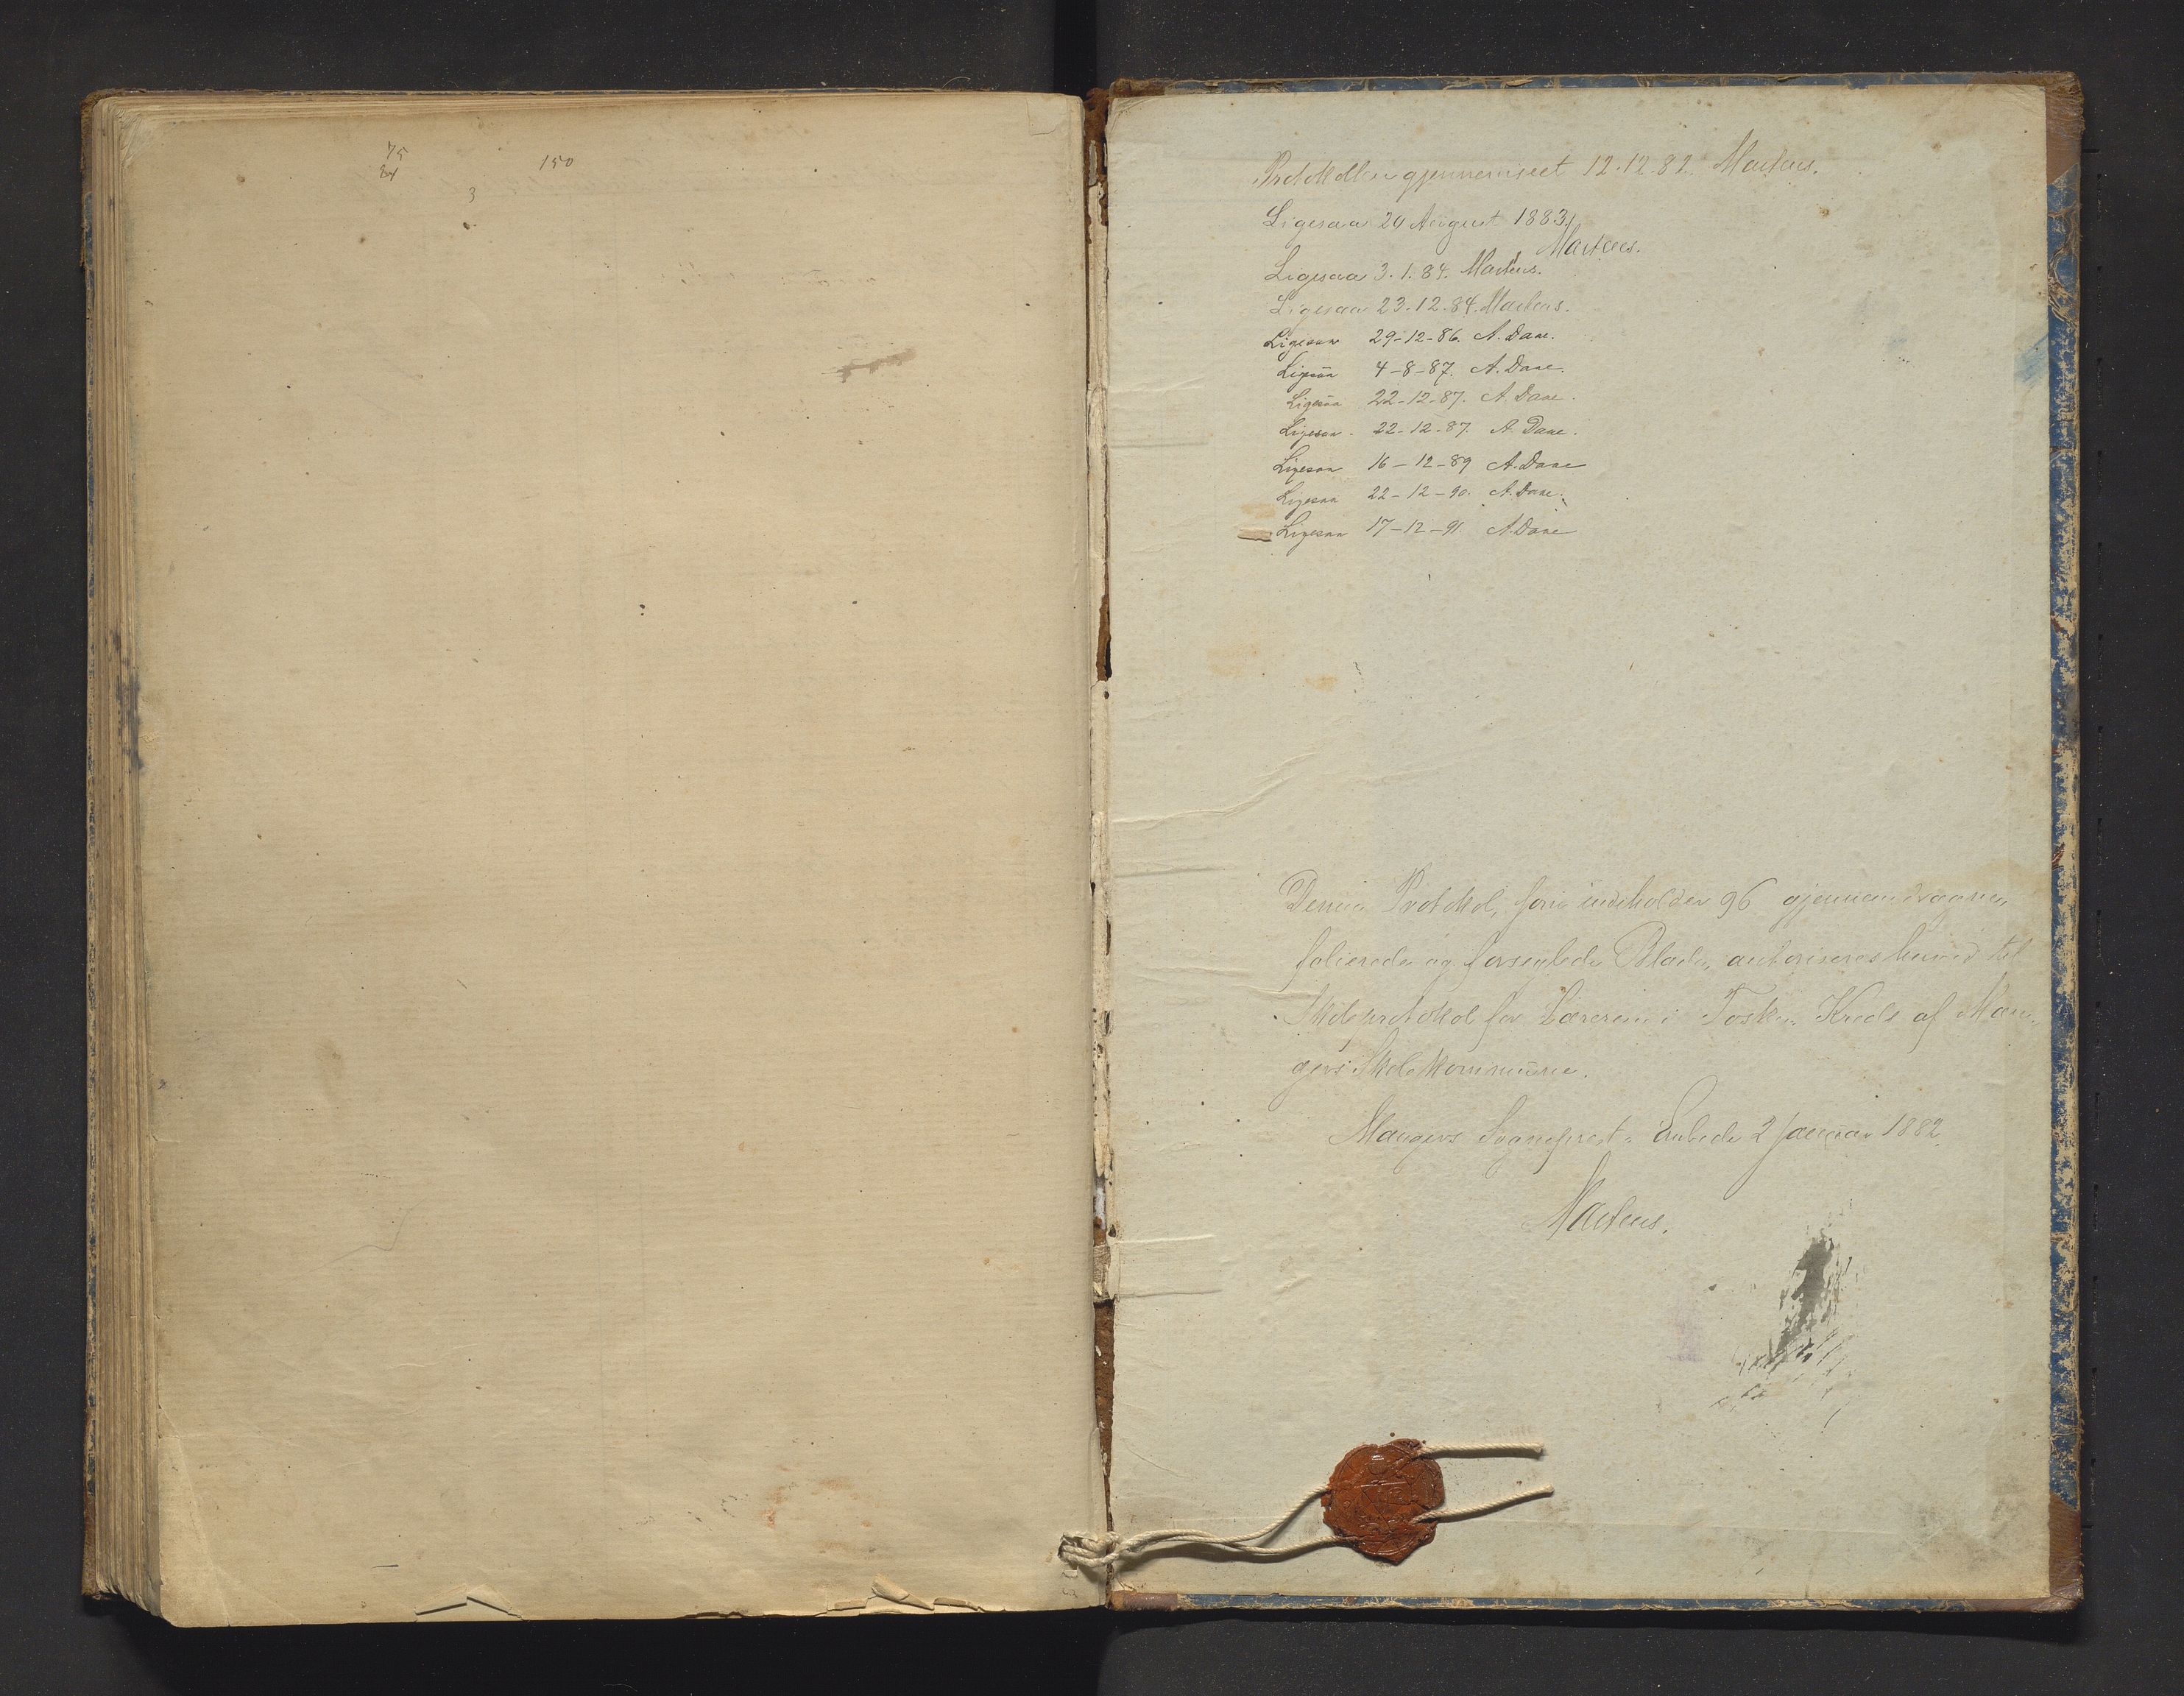 75
24
150
3
Protokollen gjennemseet 12.12.82. Martens.
Ligesaa 29 August 1883.
Martens.
Ligesaa 3.1.84. Martens.
Ligesaa 23.12.84. Martens.
Ligesaa 29-12-86. A. Dane.
Ligesaa 4-8-87. A. Dane.
Ligesaa 22-12-87. A. Dane.
Ligesaa - 22-12-87. A. Dane.
Ligesaa 16-12-89 A. Dane
Ligesaa 22-12-90. A. Dane.
Ligesaa 17-12-91. A. Dane
Denne Protokol, som indeholder 96 gjennemdragne,
folierede og forseglede Blade, autoriseres herved til
Skoleprotokol for Læreren i Toska Kreds af Man-
gers Skolekommune.
Mangers Sognepræst-Embede 2 Januar 1882.
Martens.